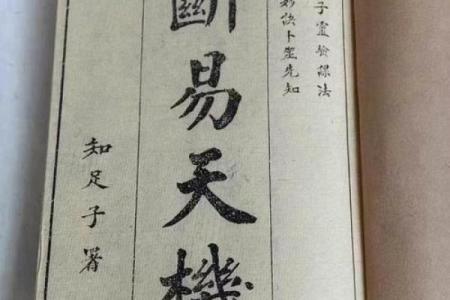 子靈應課法
訣卜筮先知
斷易天機
知足子署